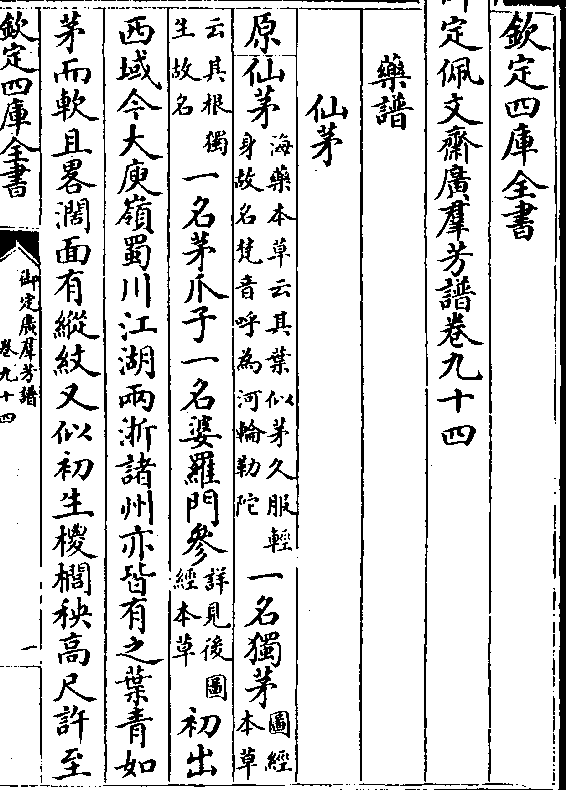 欽定四庫全書
定佩文齋廣羣芳譜卷九十四
藥譜
仙茅
原仙茅海藥本草云其葉似茅久服輕身故名梵音呼為河輪勒陀一名獨茅圖經本草
云其根獨生故名一名茅爪子一名婆羅門參詳見後圖經本草初出
西域今大庾嶺蜀川江湖兩浙諸州亦皆有之葉青如
茅而軟且畧濶面有縱紋又似初生椶櫚秧高尺許至
欽定四庫全書
御定廣羣芳譜
卷九十四
一